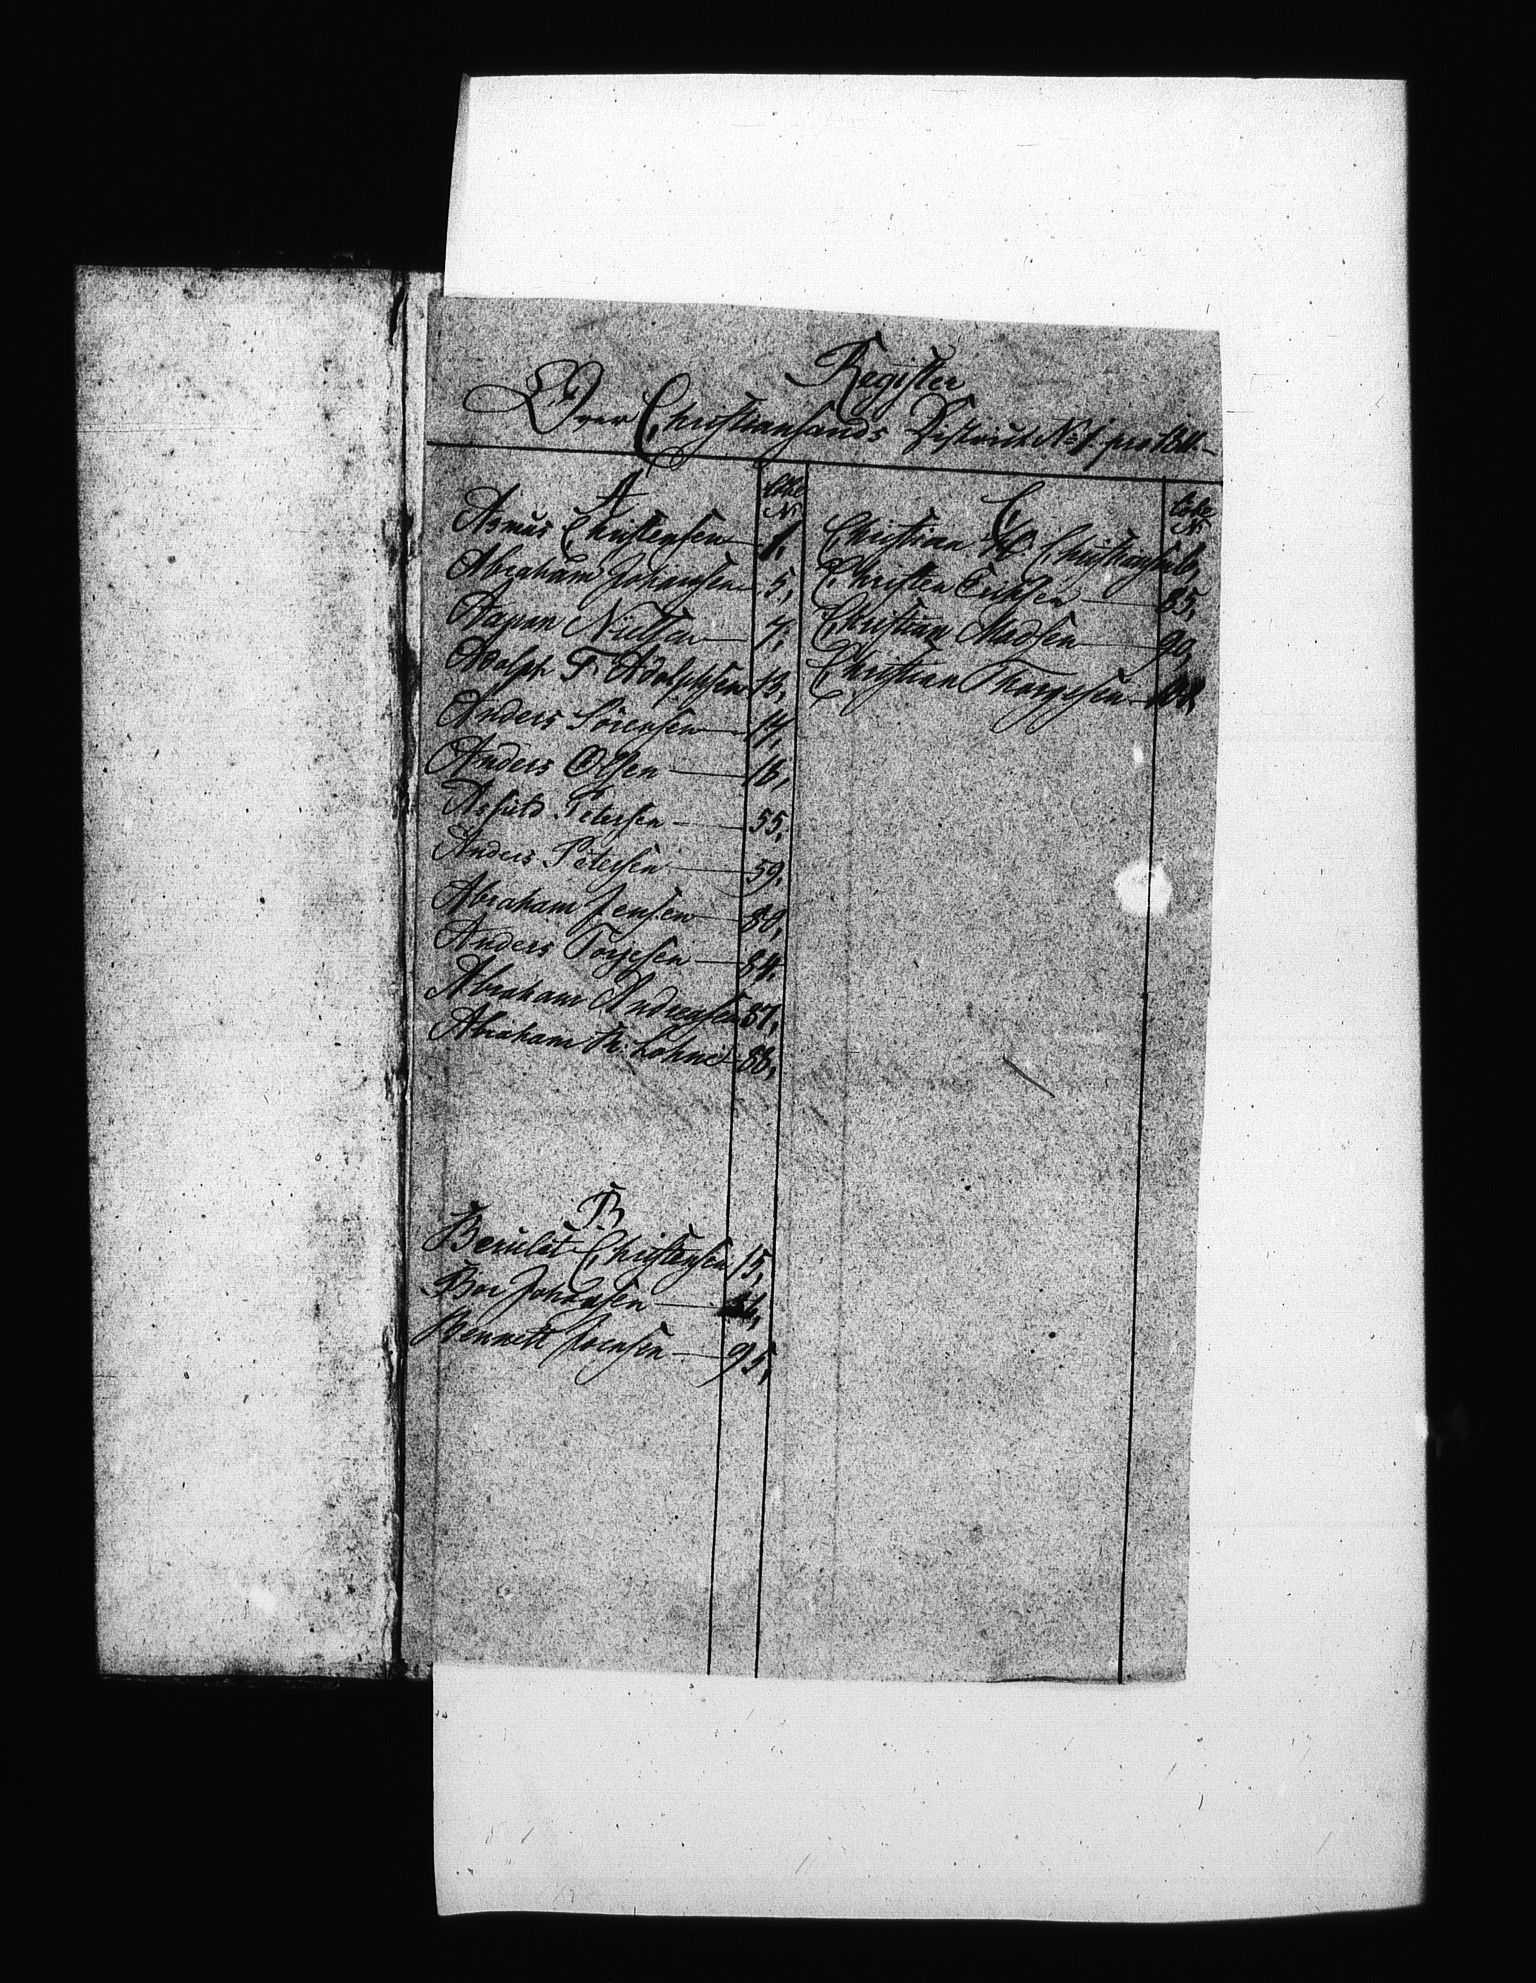 Register
Over Christiansands District No 1 pro
A
Løbe
No
Asmus Christensen 1,
Abraham Johansen 5,
Aagaan Nielsen 7,
Adolph F. Adolphsen 13,
Anders Sørensen 14,
Anders Olsen 16,
Petersen 55,
Anders Petersen 59,
Abraham Jensen 80,
Anders Torjesen 84,
Abraham Andreasen 87,
Abraham Th: Lohne 88,
B
Beruldt Christensen 15,
Boe Johansen
Bennett Joensen 95,
C
Løbe
No
Christian Christiansen 6,
Christen Erichsen 85,
Christian Madsen 90,
Christian Thorgesen